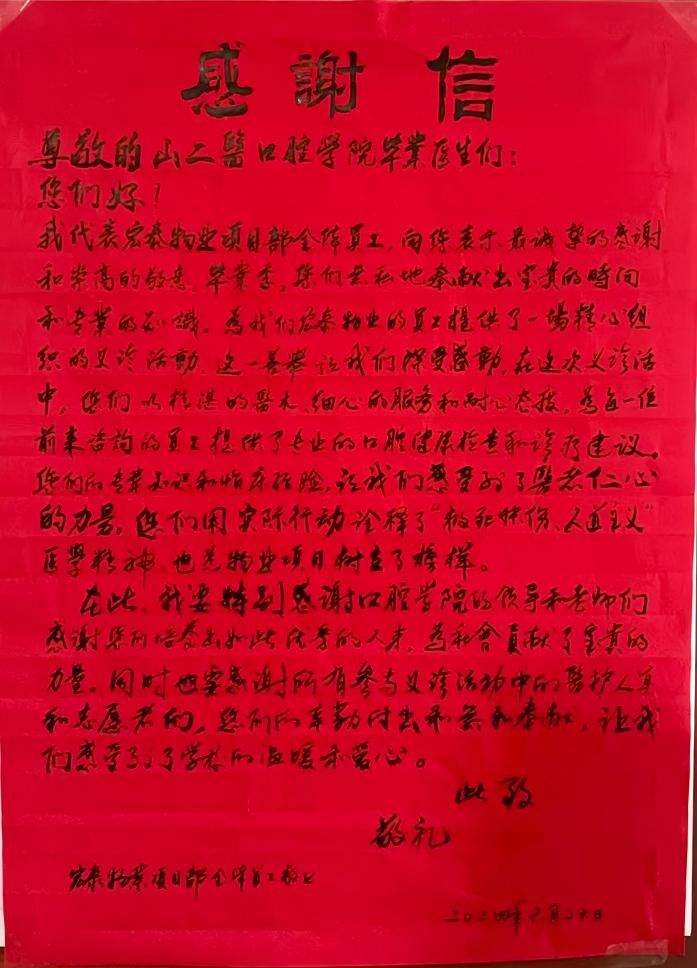 感謝信
尊敬的山二醫口腔学院毕業医生们：
您们好！
我代表宏泰物业项目部全体員工，向您表示最诚挚的感谢
和崇高的敬意。毕業季，您们无私地奉献出宝貴的時间
和专業的知識。為我们宏泰物业的員工提供了一場精心组
织的义诊活動，这一善举让我们深受感動，在这次义诊活
中，您们以精湛的醫术、细心的服务和耐心态度，為每一位
前来咨詢的員工提供了专业的口腔健康检查和诊疗建议。
您们的专業知识和临床经验，让我们感受到了醫者仁心
的力量。您们用实际行动诠释了“救死扶伤、人道主义”
医學精神，也为物业项目树立了榜样。
在此，我要特别感谢口腔学院的领导和老师们
感谢您们培养出如此优秀的人才，為社會贡献了宝貴的
力量。同时也要感谢所有参与义诊活动中的醫护人员
和志愿者们，您们的辛勤付出和無私奉献，让我
们感受到了学校的温暖和爱心。
此致
敬礼
宏泰物業项目部全体員工敬上
二〇二四年六月二十六日